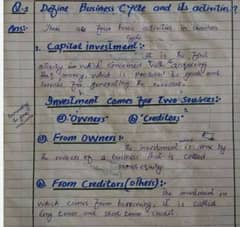 Q.3 Define Business Cycle and its activities?
Ans:- There are four basic activities in business
cycle
1. Capital investment:-
It is the first
activity in which concerned with
money, which is to goods and
services for generating the revenue.
Investment comes for two sources:-
① "Owners" ② "Creditors"
①. From Owners:-
The investment is done by
the owners of a business that is called
②. From Creditors (others):-
The investment in
which comes from borrowing, it is called
long term and short term credit.